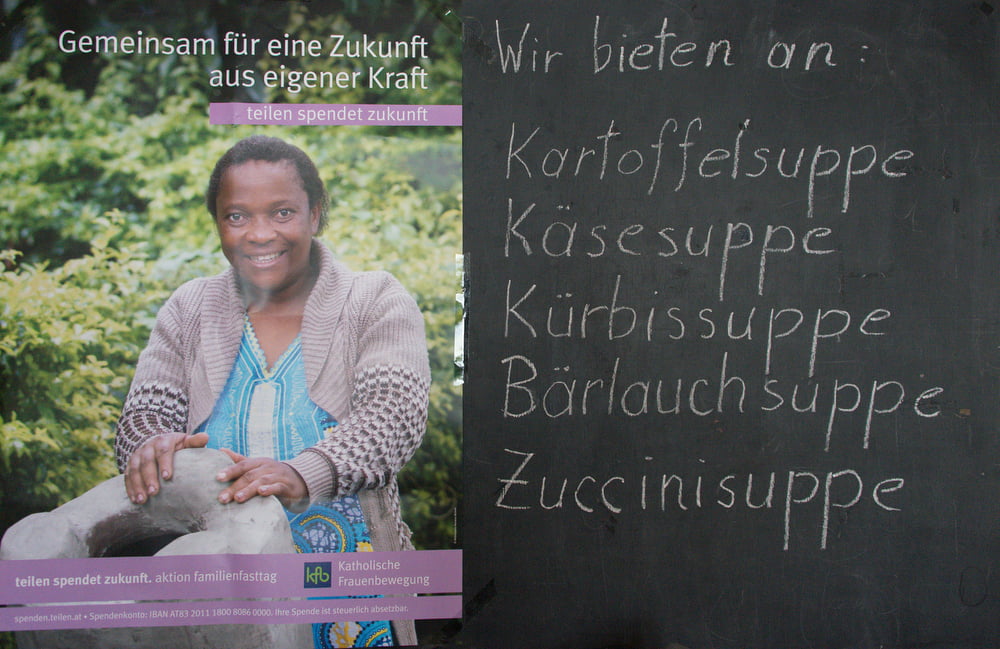 Gemeinsam für eine Zukunft
aus eigener Kraft
teilen spendet zukunft
teilen spendet zukunft. aktion familienfasttag
kfb
Katholische
Frauenbewegung
spenden.teilen.at • Spendenkonto: IBAN AT83 2011 1800 8086 0000. Ihre Spende ist steuerlich absetzbar.
Wir bieten an:
Kartoffelsuppe
Käsesuppe
Kürbissuppe
Bärlauchsuppe
Zuccinisuppe